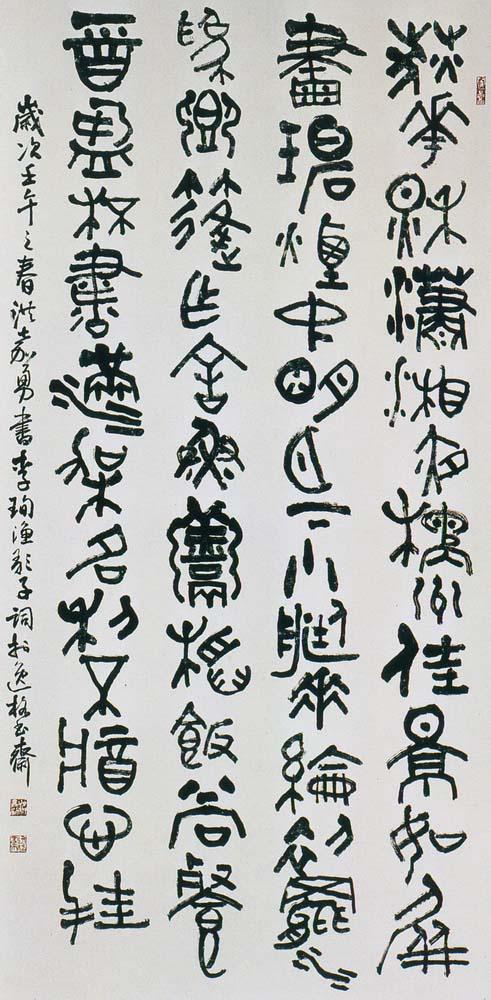 荻花秋瀟湘夜橘洲佳景如屏
畫碧煙中明月下小艇垂綸初罷水
為鄉篷作舍魚羹稻飯常餐也
酒盈杯書滿架名利不將心挂
歲次壬午之春洪嘉勇書李珣漁歌子詞於逸格齋